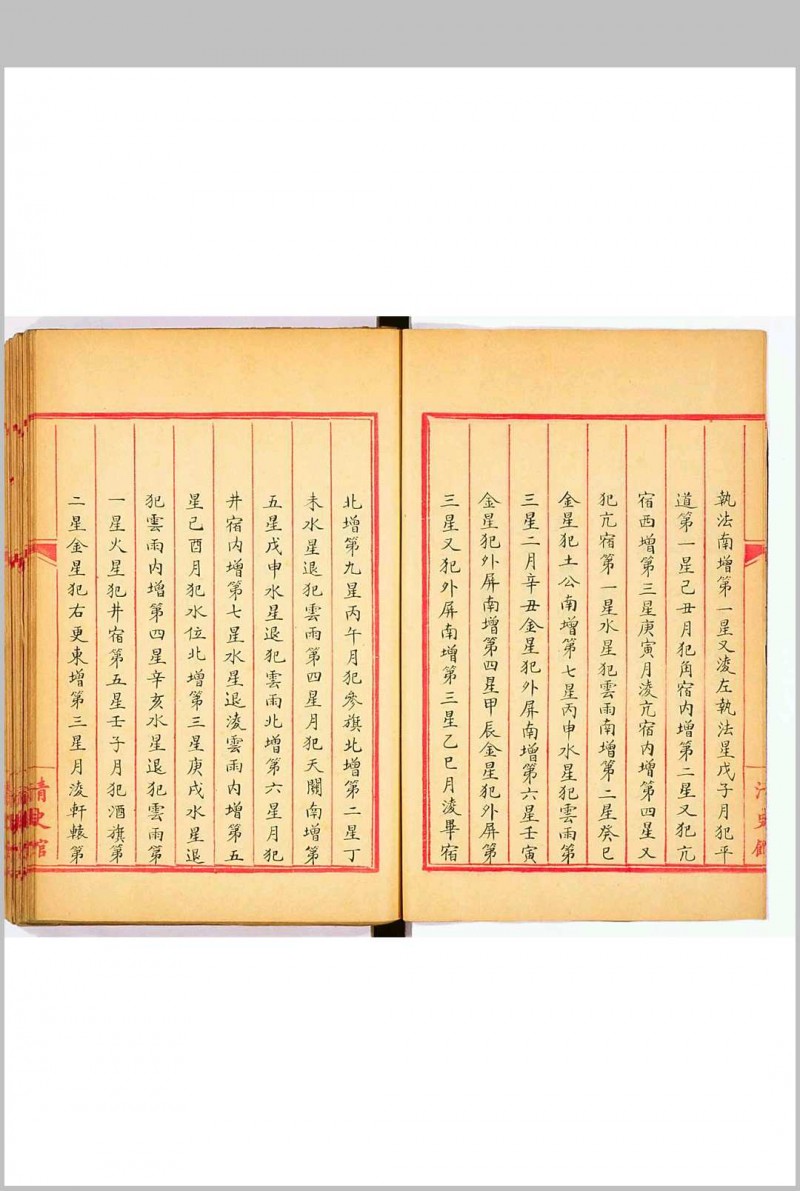 執法南增第一星又淩左執法星戊子月犯平
道第一星己丑月犯角宿內增第二星又犯亢
宿西增第三星庚寅月淩亢宿內增第四星又
犯亢宿第一星水星犯雲雨南增第二星癸巳
金星犯土公南增第七星丙申水星犯雲雨第
三星二月辛丑金星犯外屏南增第六星壬寅
金星犯外屏南增第四星甲辰金星犯外屏第
三星又犯外屏南增第三星乙巳月淩畢宿
北增第九星丙午月犯參旗北增第二星丁
未水星退犯雲雨第四星月犯天關南增第
五星戊申水星退犯雲雨北增第六星月犯
井宿內增第七星水星退淩雲雨內增第五
星己酉月犯水位北增第三星庚戌水星退
犯雲雨內增第四星辛亥水星退犯雲雨第
一星火星犯井宿第五星壬子月犯酒旗第
二星金星犯右更東增第三星月淩軒轅第
清史館